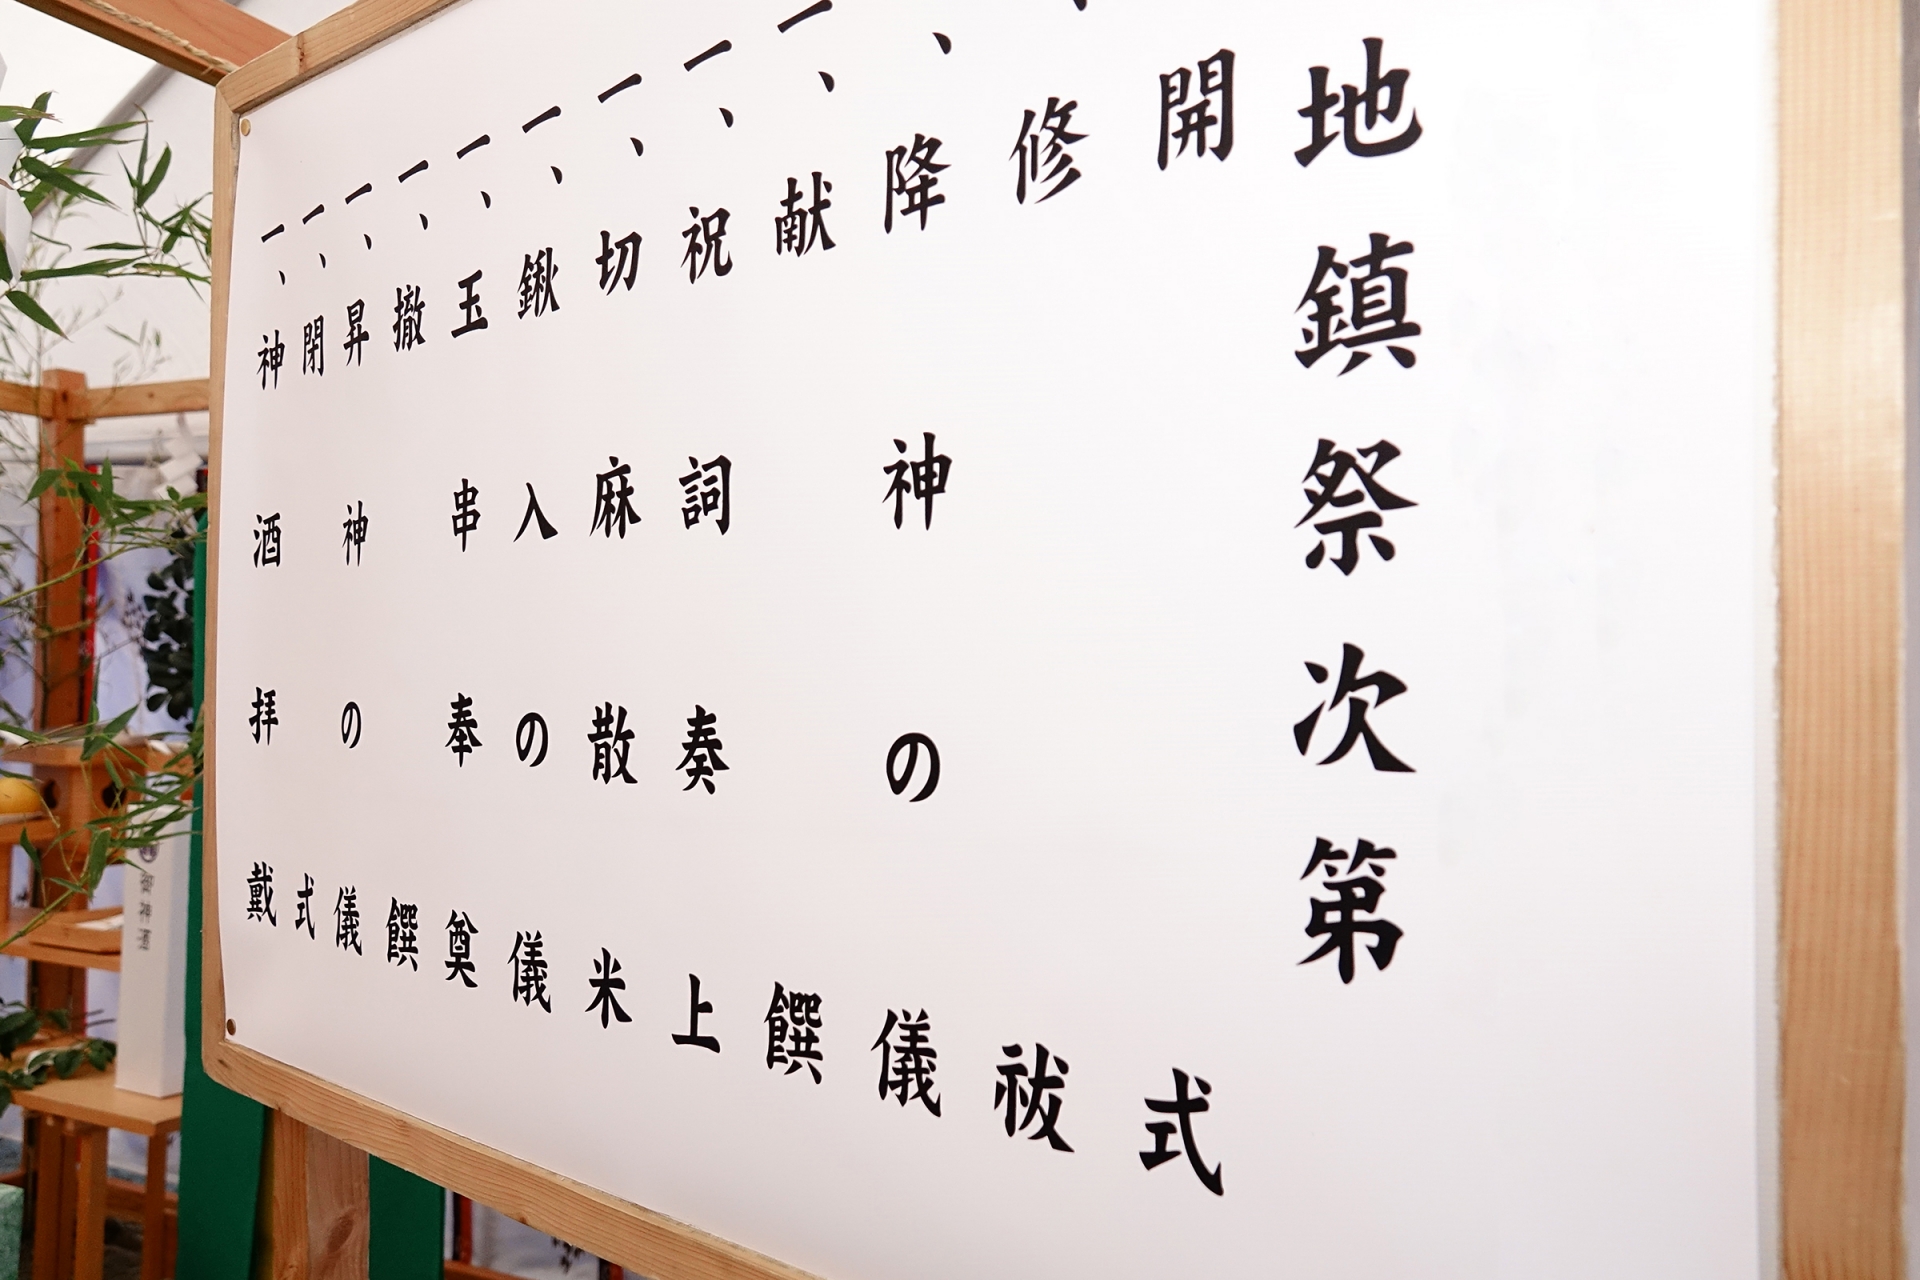 地鎮祭次第
開式
、修祓
、降神の儀
一、献饌
一、祝詞奏上
一、切麻散米
一、鍬入の儀
一、玉串奉奠
一、撤饌
一、昇神の儀
一、閉式
一、神酒拝戴
御神酒